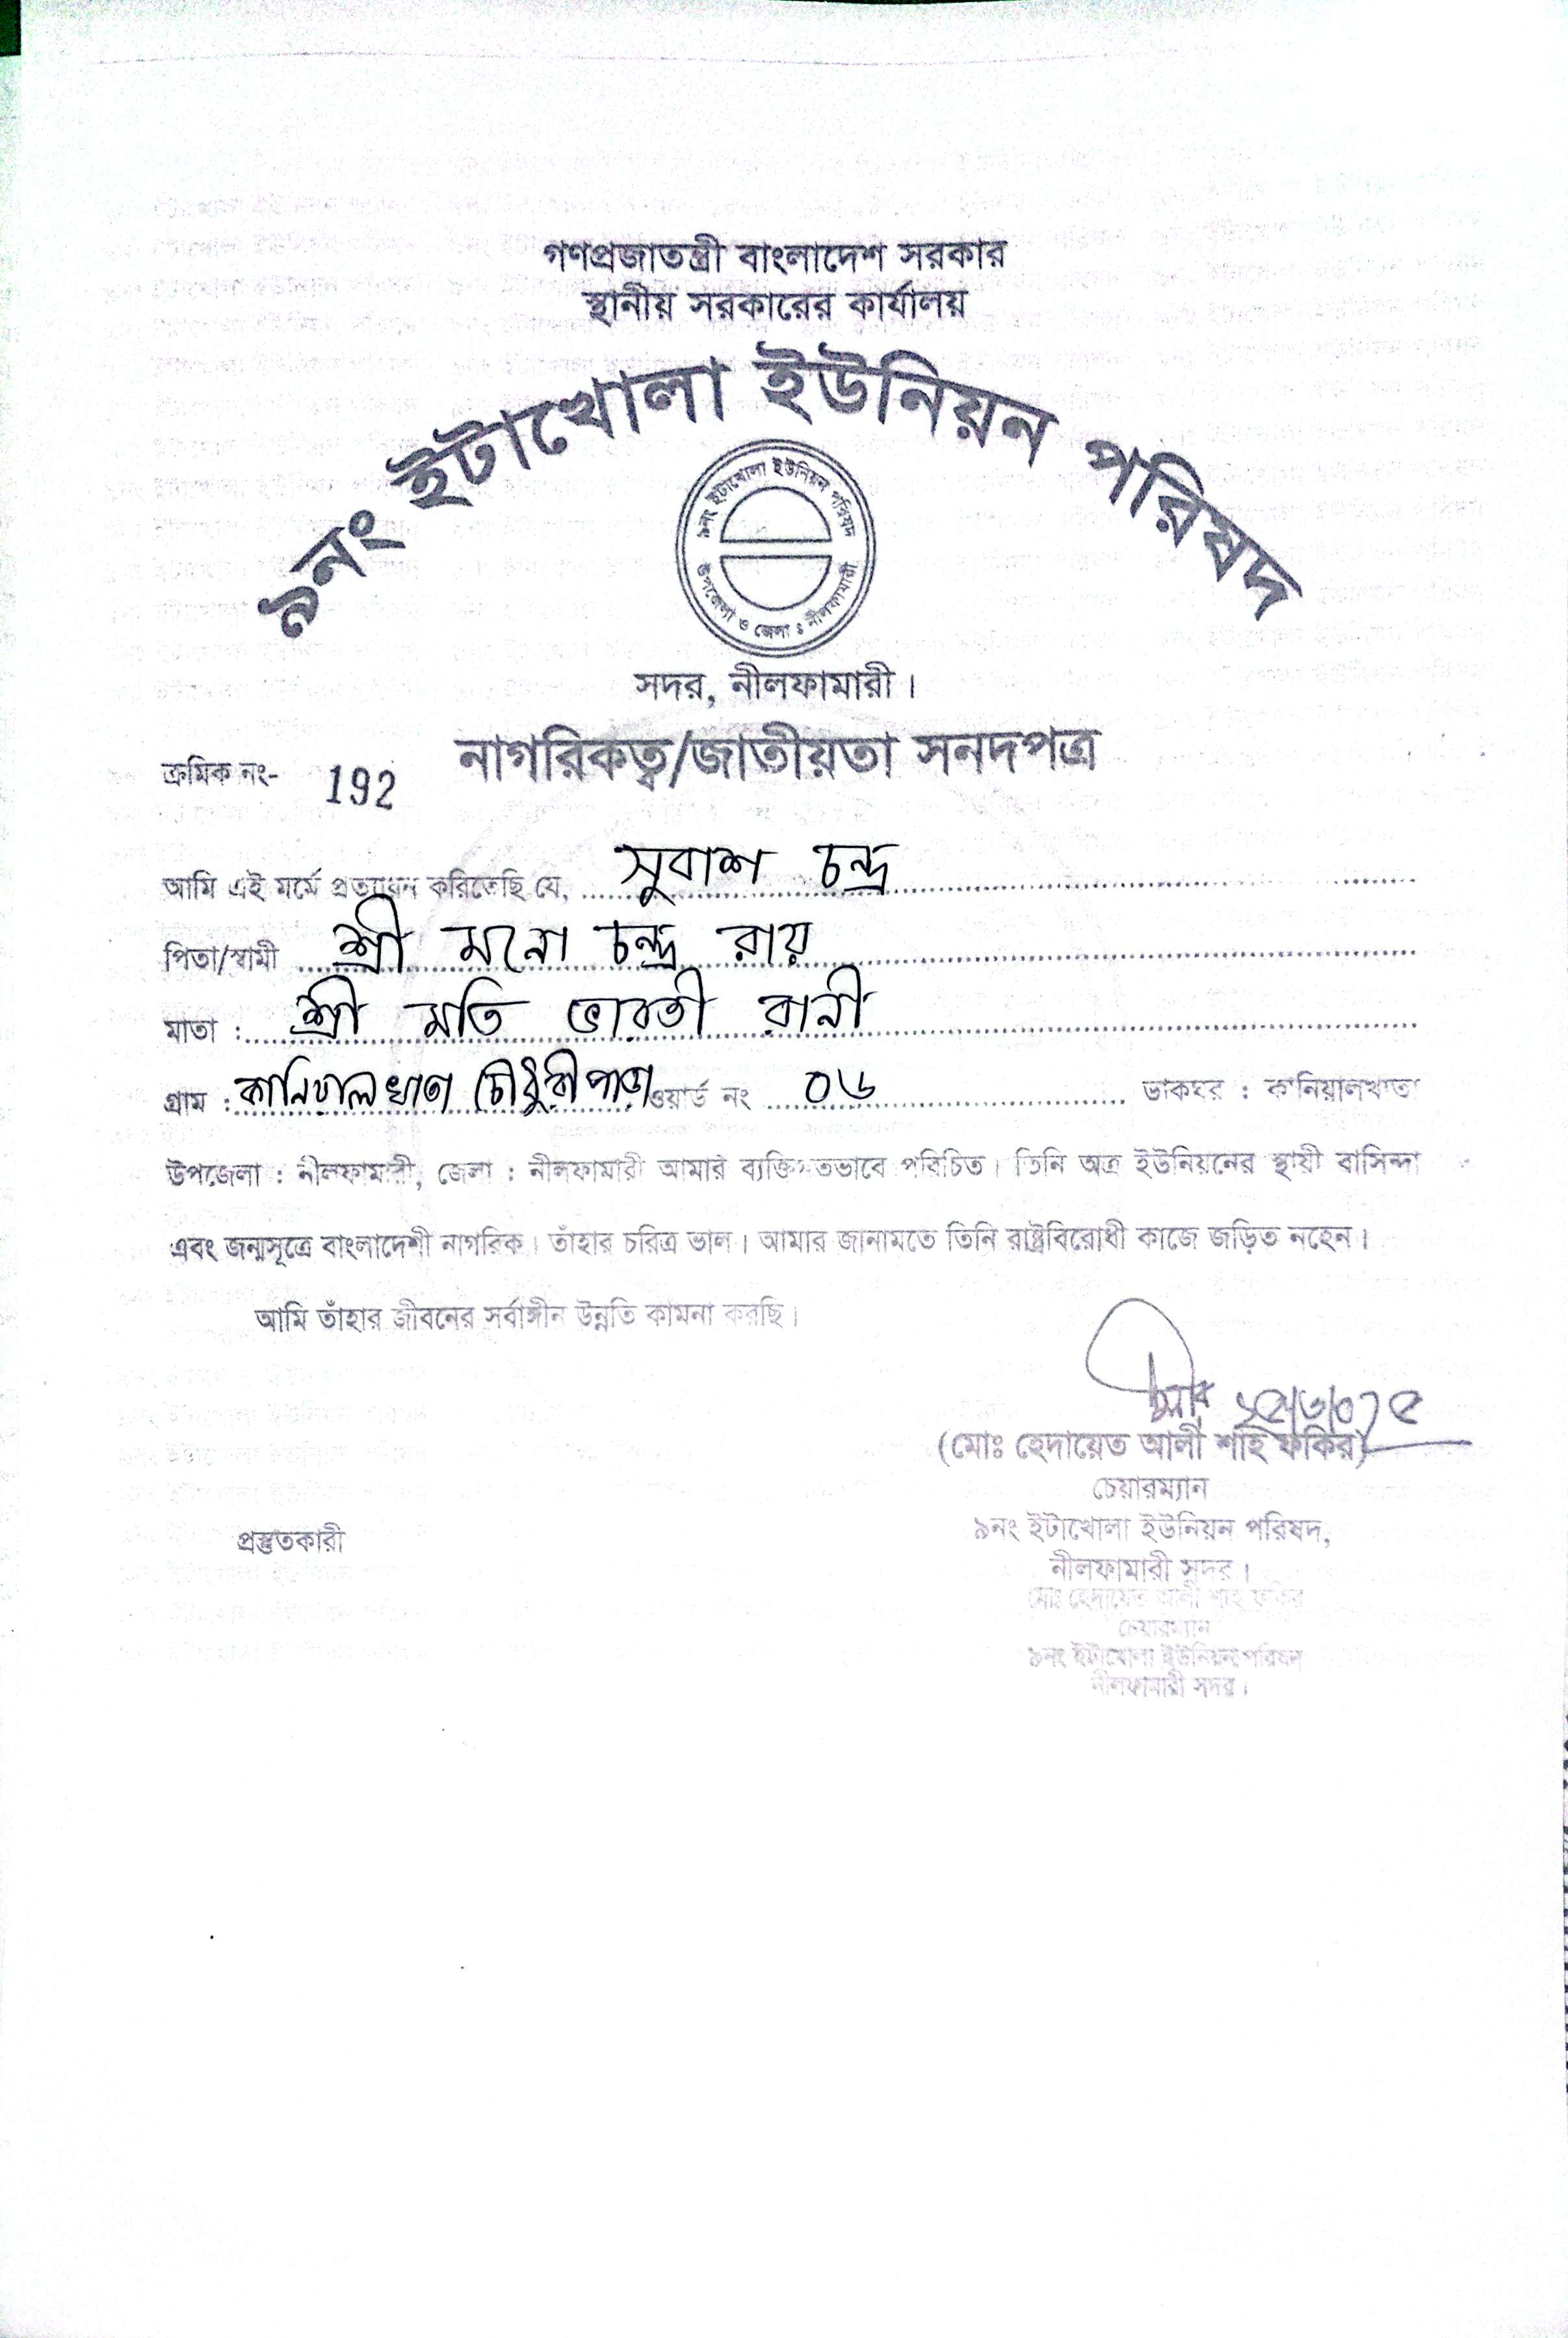 গণপ্রজাতন্ত্রী বাংলাদেশ সরকার
স্থানীয় সরকারের কার্যালয়
৯নং ইটাখোলা ইউনিয়ন পরিষদ
৯নং ইটাখোলা ইউনিয়ন পরিষদ
উপজেলা ও জেলা ঃ নীলফামারী
সদর, নীলফামারী।
নাগরিকত্ব/জাতীয়তা সনদপত্র
ক্রমিক নং- 192
আমি এই মর্মে প্রত্যায়ন করিতেছি যে, সুবাশ চন্দ্র
পিতা/স্বামী শ্রী মনো চন্দ্র রায়
মাতা : শ্রী মতি ভারতী রানী
গ্রাম : কানিয়ালখাতা চৌধুরীপাড়া ওয়ার্ড নং ০৬ ডাকঘর : কানিয়ালখাতা
উপজেলা : নীলফামারী, জেলা : নীলফামারী আমার ব্যক্তিগতভাবে পরিচিত। তিনি অত্র ইউনিয়নের স্থায়ী বাসিন্দা
এবং জন্মসূত্রে বাংলাদেশী নাগরিক। তাঁহার চরিত্র ভাল। আমার জানামতে তিনি রাষ্ট্রবিরোধী কাজে জড়িত নহেন।
আমি তাঁহার জীবনের সর্বাঙ্গীন উন্নতি কামনা করছি।
(মোঃ হেদায়েত আলী শাহ ফকির)
চেয়ারম্যান
৯নং ইটাখোলা ইউনিয়ন পরিষদ,
প্রস্তুতকারী
নীলফামারী সদর।
মোঃ হেদায়েত আলী শাহ ফকির
চেয়ারম্যান
৯নং ইটাখোলা ইউনিয়ন পরিষদ
নীলফামারী সদর।